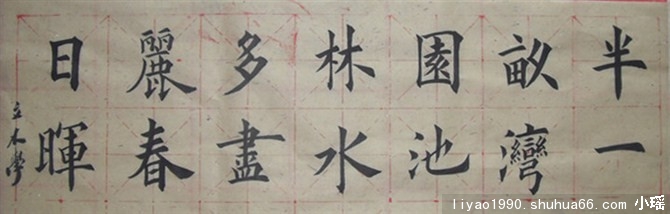 半畝園林多麗日
一灣池水盡春暉
立木學
liyao1990.shuhua66.com 小瑶